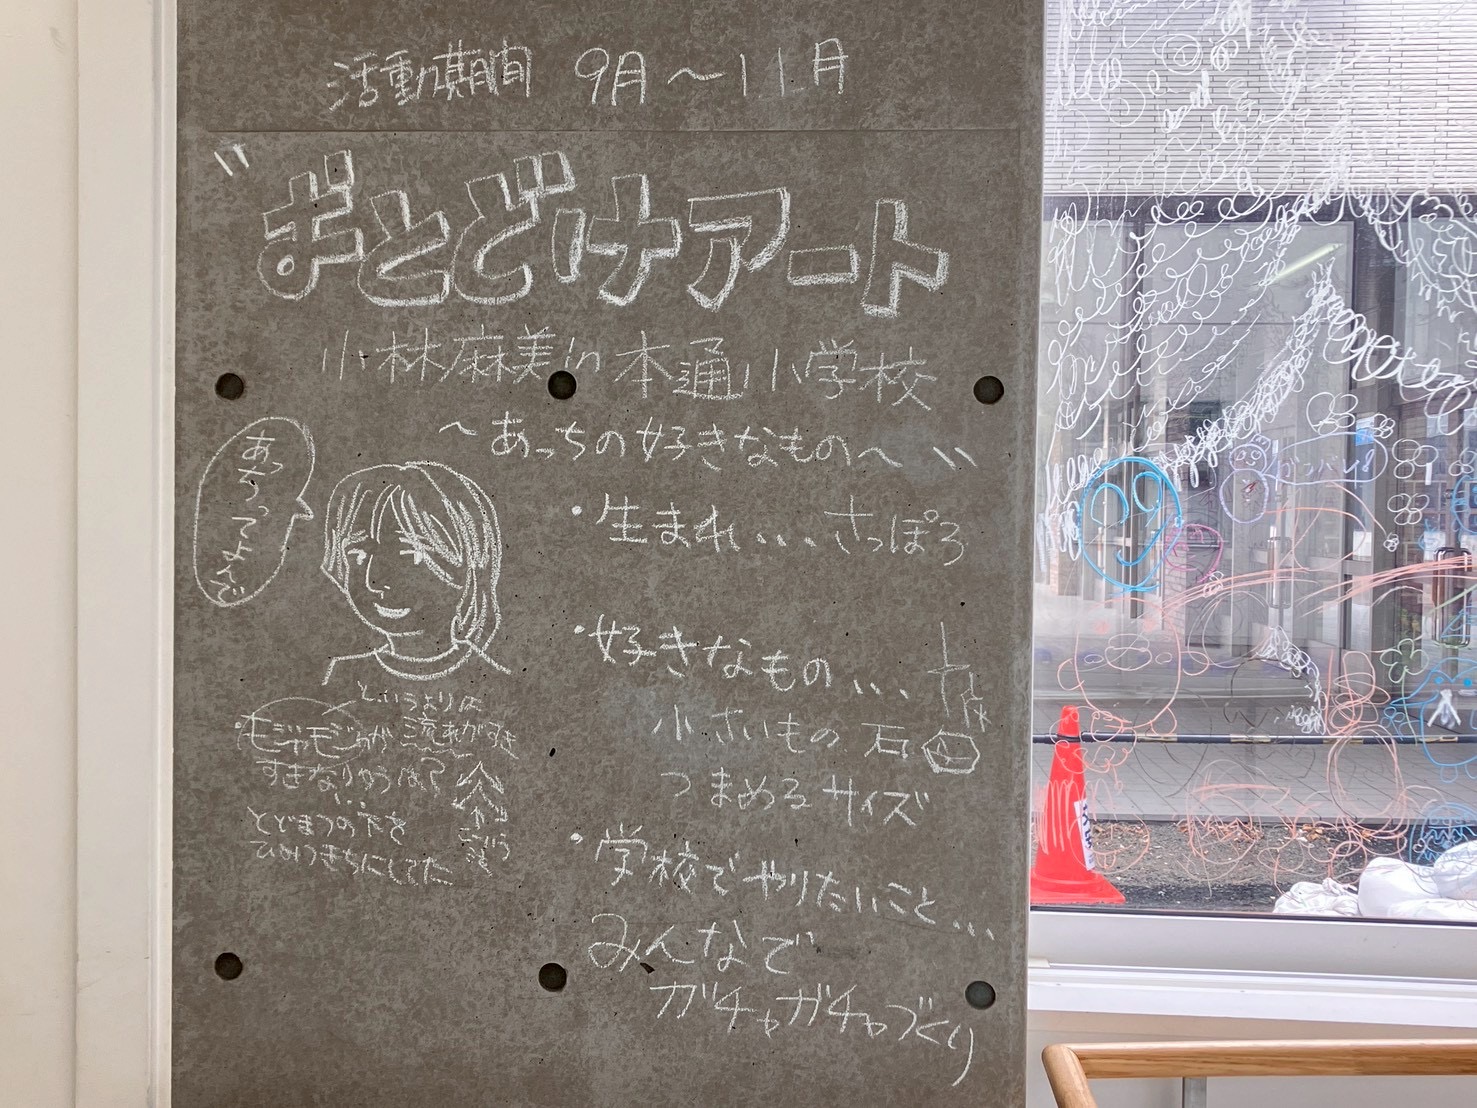 活動期間 9月〜11月
"おとどけアート
小林麻美in本通小学校
〜あっちの好きなもの〜"
あっちってよんで
・生まれ...さっぽろ
・好きなもの...
小さいもの 石
つまめるサイズ
・学校でやりたいこと...
みんなで
ガチャガチャづくり
というよりは
・モジャモジャが 流れがすき
すきなりゆうは?
とどまつの下を
ひみつきちにしてた